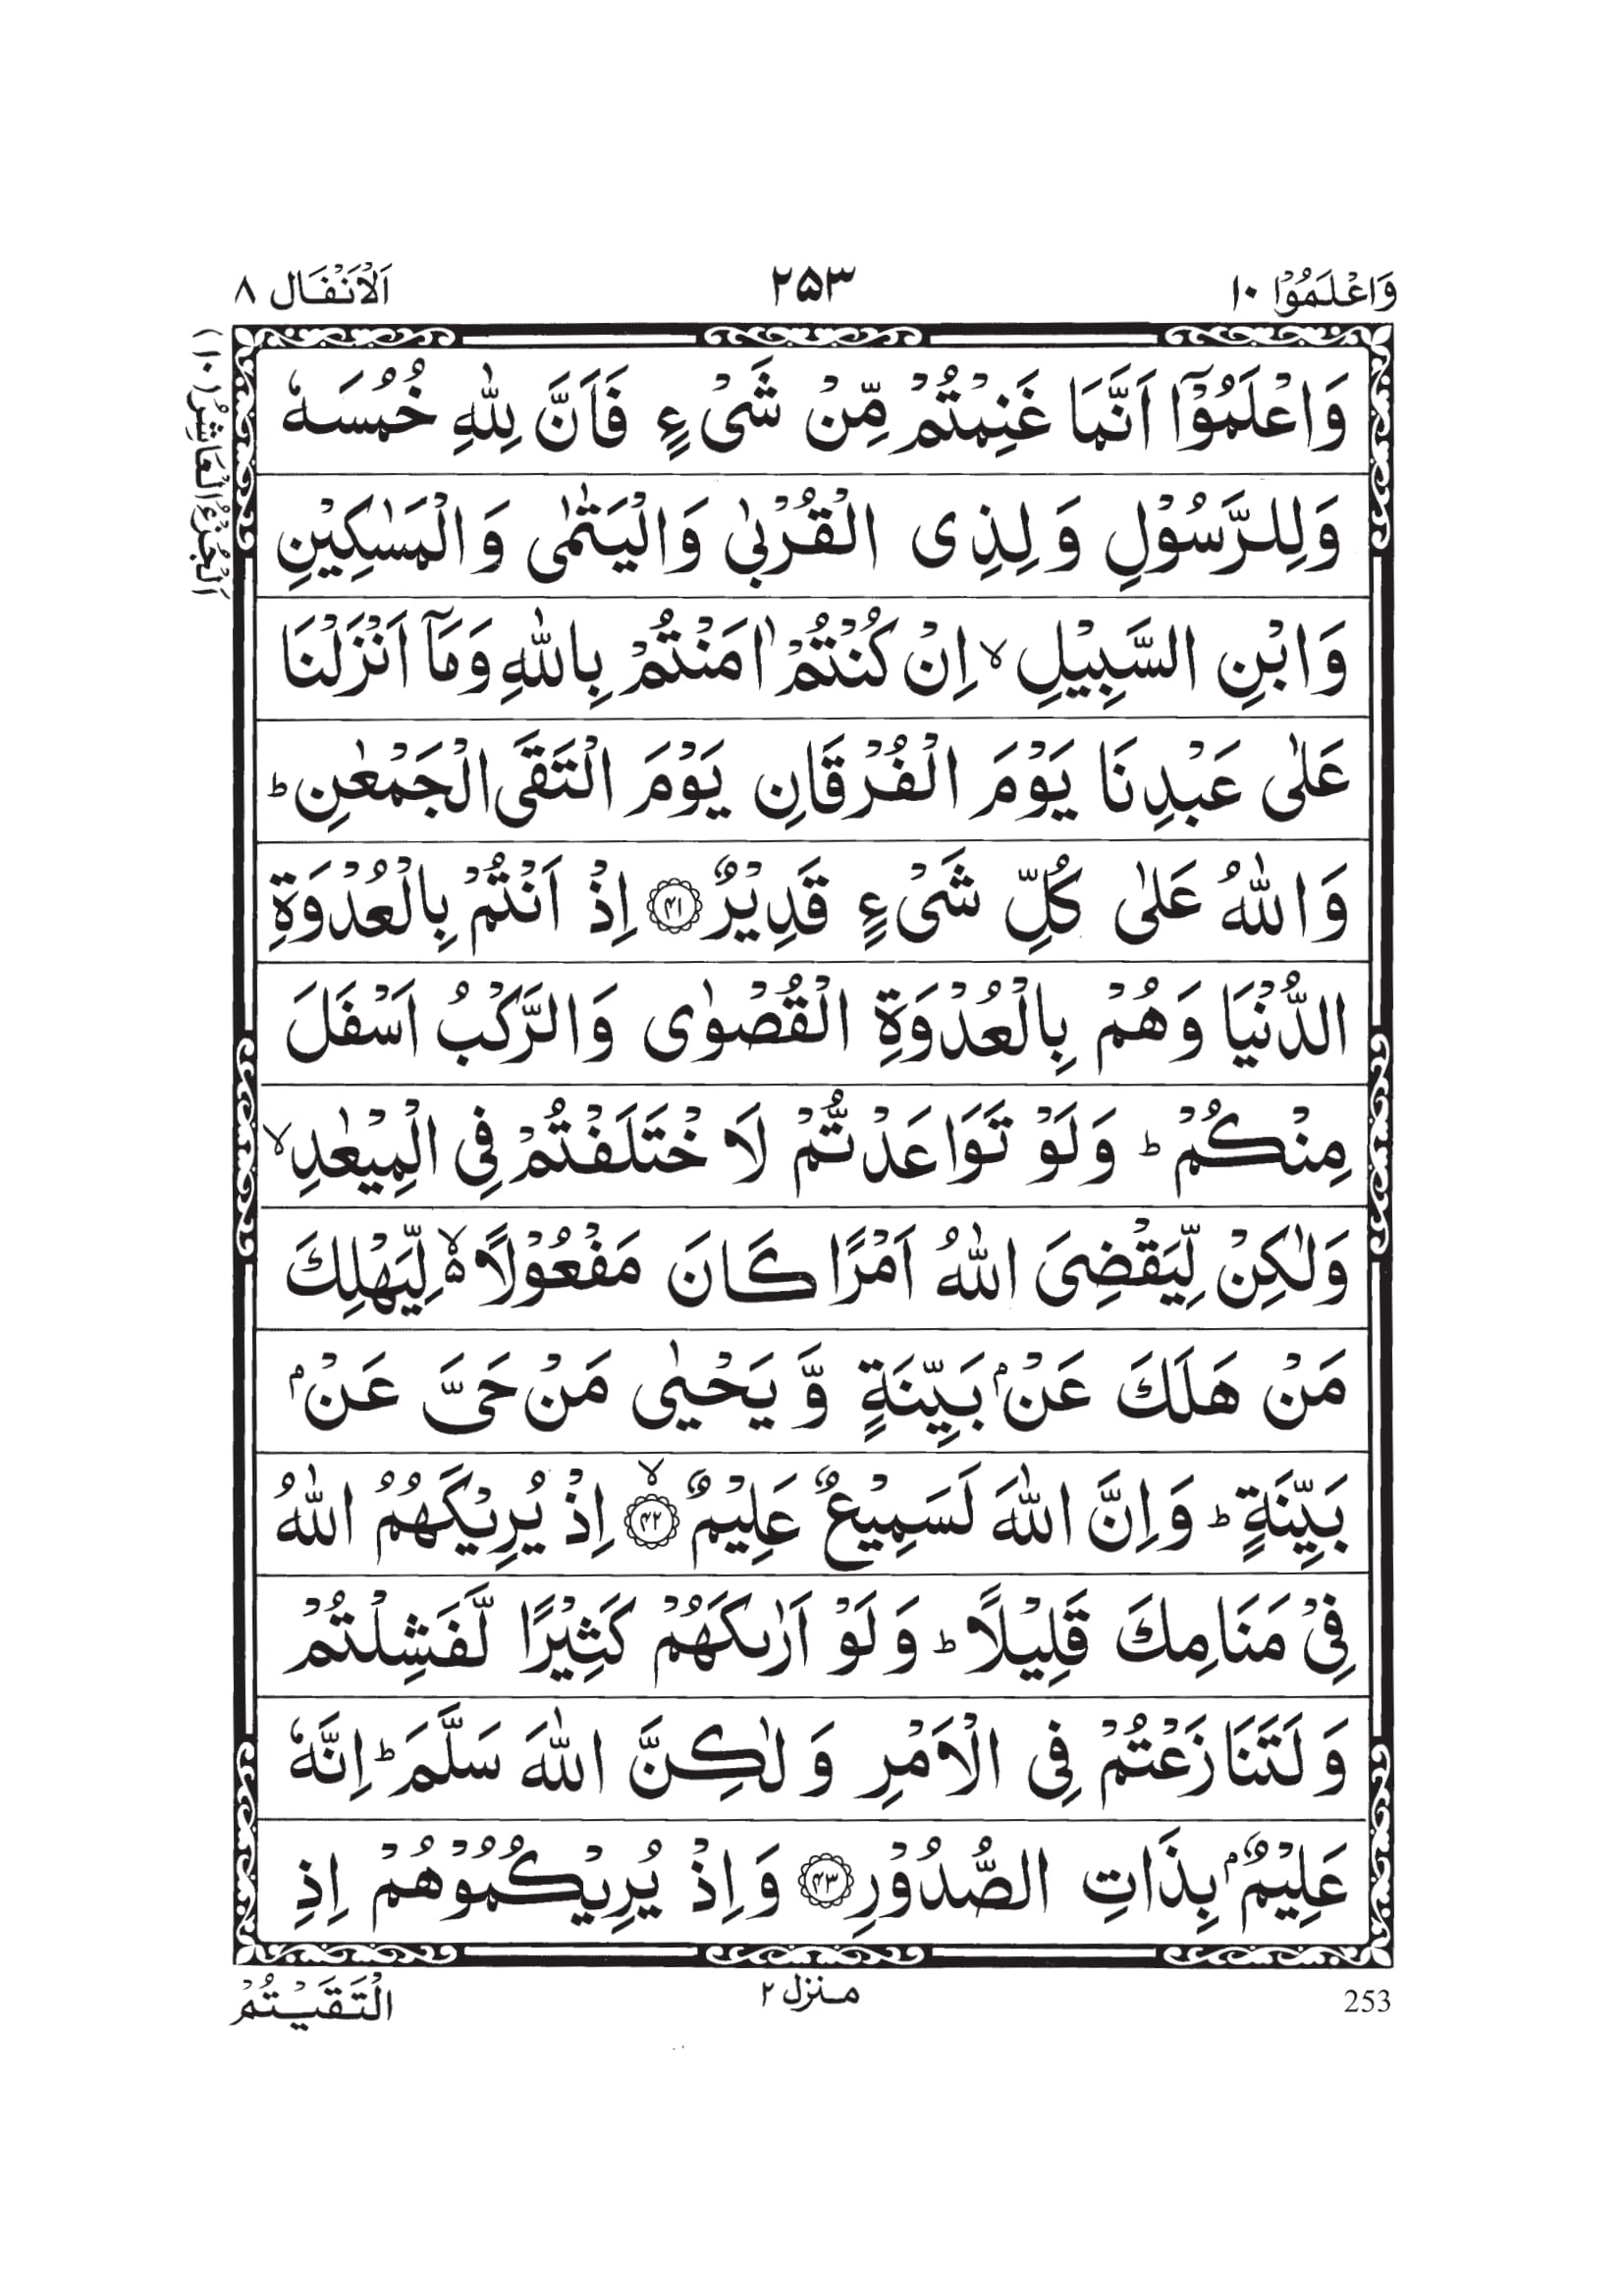 وَاعْلَمُوْۤا ۱۰
۲۵۳
اَلْاَنْفَال ۸
اَلْجُزْءُ الْعَاشِرُ (۱۰)
وَاعْلَمُوْۤا اَنَّمَا غَنِمْتُمْ مِّنْ شَیْءٍ فَاَنَّ لِلّٰهِ خُمُسَهٗ
وَلِلرَّسُوْلِ وَ لِذِی الْقُرْبٰی وَالْیَتٰمٰی وَالْمَسٰكِیْنِ
وَابْنِ السَّبِیْلِ ۙ اِنْ كُنْتُمْ اٰمَنْتُمْ بِاللّٰهِ وَمَاۤ اَنْزَلْنَا
عَلٰی عَبْدِنَا یَوْمَ الْفُرْقَانِ یَوْمَ الْتَقَی الْجَمْعٰنِ ؕ
وَاللّٰهُ عَلٰی كُلِّ شَیْءٍ قَدِیْرٌ ﴿۴۱﴾ اِذْ اَنْتُمْ بِالْعُدْوَةِ
الدُّنْیَا وَهُمْ بِالْعُدْوَةِ الْقُصْوٰی وَالرَّكْبُ اَسْفَلَ
مِنْكُمْ ؕ وَلَوْ تَوَاعَدْتُّمْ لَاخْتَلَفْتُمْ فِی الْمِیْعٰدِ ۙ
وَلٰكِنْ لِّیَقْضِیَ اللّٰهُ اَمْرًا كَانَ مَفْعُوْلًا ۙ۬ لِّیَهْلِكَ
مَنْ هَلَكَ عَنْۢ بَیِّنَةٍ وَّ یَحْیٰی مَنْ حَیَّ عَنْۢ
بَیِّنَةٍ ؕ وَاِنَّ اللّٰهَ لَسَمِیْعٌ عَلِیْمٌ ﴿ۙ۴۲﴾ اِذْ یُرِیْكَهُمُ اللّٰهُ
فِیْ مَنَامِكَ قَلِیْلًا ؕ وَلَوْ اَرٰىكَهُمْ كَثِیْرًا لَّفَشِلْتُمْ
وَلَتَنَازَعْتُمْ فِی الْاَمْرِ وَلٰكِنَّ اللّٰهَ سَلَّمَ ؕ اِنَّهٗ
عَلِیْمٌۢ بِذَاتِ الصُّدُوْرِ ﴿۴۳﴾ وَاِذْ یُرِیْكُمُوْهُمْ اِذِ
253
منزل ۲
الْتَقَیْتُمْ